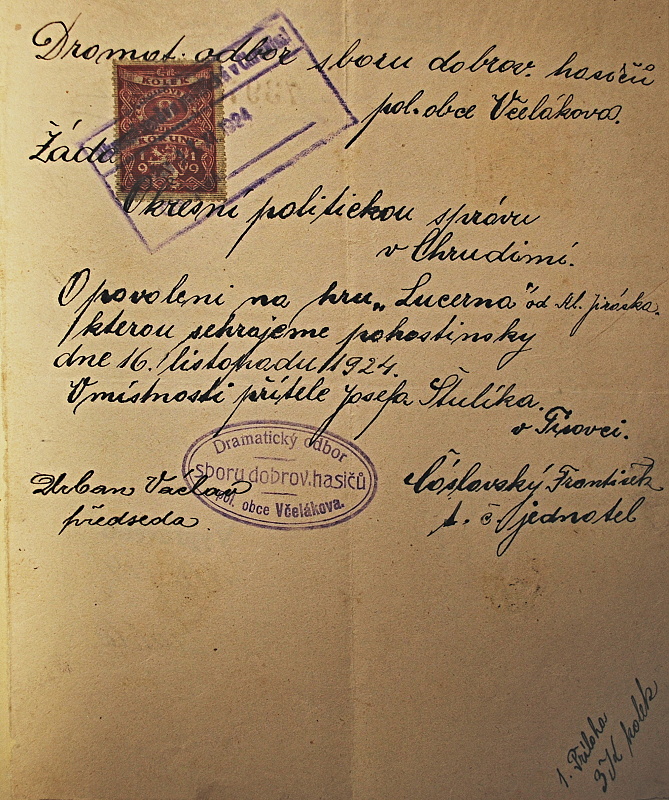 Dramat. odbor sboru dobrov. hasičů
pol. obce Včelákova.
Žádá
Okresní politickou správu
v Chrudimi.
O povolení na hru „Lucerna" od Al. Jiráska.
kterou sehrajeme pohostinsky
dne 16. listopadu 1924.
V místnosti přítele Josefa Štulíka.
v Tisovci.
Dramatický odbor
sboru dobrov. hasičů
pol. obce Včelákova.
Urban Václav
předseda.
František
t. č. jednatel
KOLEK
1919
1924
1. Příloha
3 K kolek